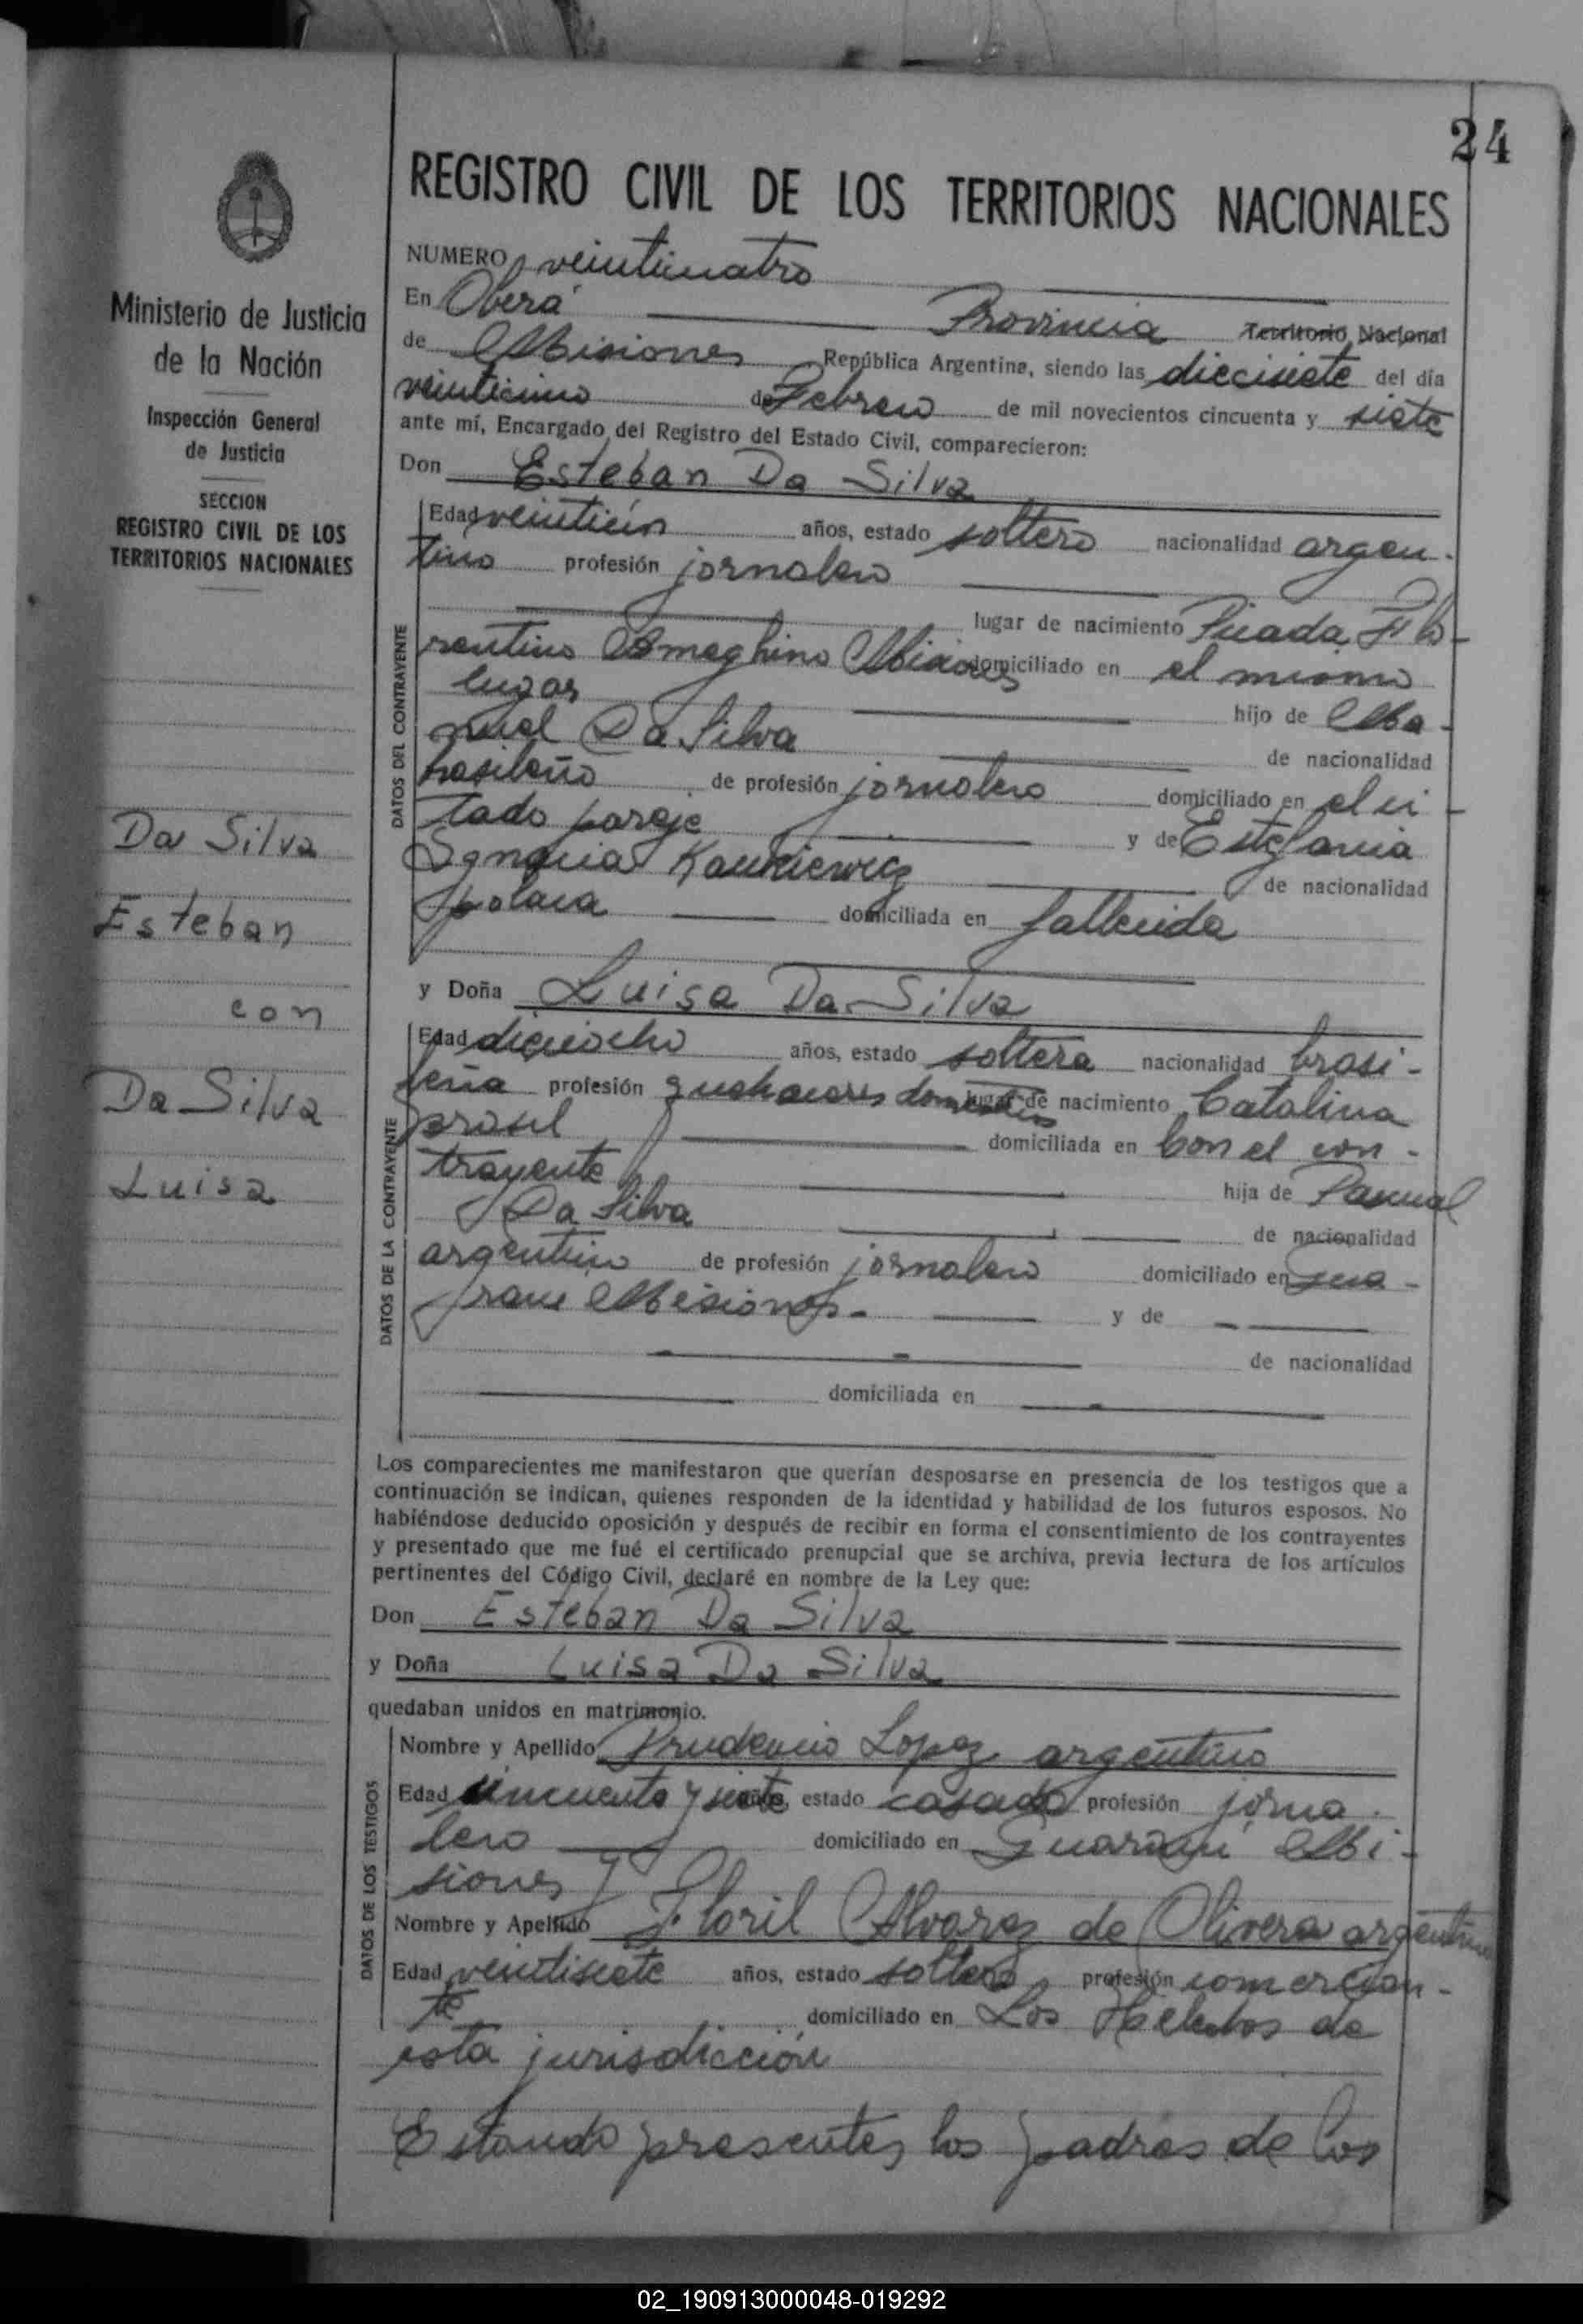 24
REGISTRO CIVIL DE LOS TERRITORIOS NACIONALES
Ministerio de Justicia
de la Nación
Inspección General
de Justicia
SECCION
REGISTRO CIVIL DE LOS
TERRITORIOS NACIONALES
Da Silva
Esteban
con
Da Silva
Luisa
NUMERO veinticuatro
En Oberá Provincia Territorio Nacional
de Misiones República Argentina, siendo las diecisiete del día
veinticinco de Febrero de mil novecientos cincuenta y siete
ante mí, Encargado del Registro del Estado Civil, comparecieron:
Don Esteban Da Silva
DATOS DEL CONTRAYENTE
Edad veintiún años, estado soltero nacionalidad argen-
tino profesión jornalero
lugar de nacimiento Picada Flo-
rentino Ameghino Misiones domiciliado en el mismo
lugar hijo de Ma-
nuel Da Silva de nacionalidad
brasileño de profesión jornalero domiciliado en el ci-
tado paraje y de Estefania
Kaukiewicz de nacionalidad
polaca domiciliada en fallecida
y Doña Luisa Da Silva
DATOS DE LA CONTRAYENTE
Edad dieciocho años, estado soltera nacionalidad brasi-
leña profesión quehaceres domesticos lugar de nacimiento Catalina
Brasil domiciliada en Con el con-
trayente hija de Pascual
Da Silva de nacionalidad
argentino de profesión jornalero domiciliado en Gua-
rani Misiones- y de
de nacionalidad
domiciliada en
Los comparecientes me manifestaron que querían desposarse en presencia de los testigos que a
continuación se indican, quienes responden de la identidad y habilidad de los futuros esposos. No
habiéndose deducido oposición y después de recibir en forma el consentimiento de los contrayentes
y presentado que me fué el certificado prenupcial que se archiva, previa lectura de los artículos
pertinentes del Código Civil, declaré en nombre de la Ley que:
Don Esteban Da Silva
y Doña Luisa Da Silva
quedaban unidos en matrimonio.
DATOS DE LOS TESTIGOS
Nombre y Apellido Prudencio Lopez argentino
Edad cincuenta y siete años, estado casado profesión jorna-
lero domiciliado en Guaraní Mi-
siones y
Nombre y Apellido Floril Alvarez de Olivera argentino
Edad veintisiete años, estado soltero profesión comercian-
te domiciliado en Los Helechos de
esta jurisdicción
Estando presentes los padres de los
02_190913000048-019292